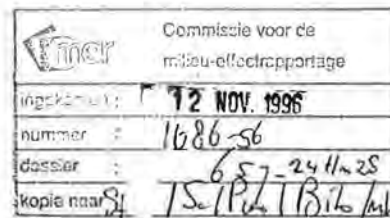 mer
Commissie voor de
milieu-effectrapportage
ingekomen : 12 NOV. 1996
nummer : 1686-56
dossier : 657-24 t/m 25
kopie naar